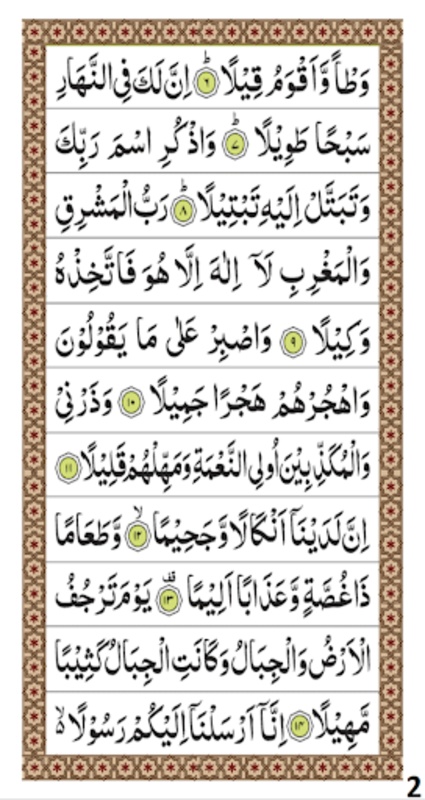 وَطْاً وَّاَقْوَمُ قِيْلًا ۶ؕ اِنَّ لَكَ فِى النَّهَارِ
سَبْحًا طَوِيْلًا ۷ؕ وَاذْكُرِ اسْمَ رَبِّكَ
وَتَبَتَّلْ اِلَيْهِ تَبْتِيْلًا ۸ؕ رَبُّ الْمَشْرِقِ
وَالْمَغْرِبِ لَاۤ اِلٰهَ اِلَّا هُوَ فَاتَّخِذْهُ
وَكِيْلًا ۹ وَاصْبِرْ عَلٰى مَا يَقُوْلُوْنَ
وَاهْجُرْهُمْ هَجْرًا جَمِيْلًا ۱۰ وَذَرْنِىْ
وَالْمُكَذِّبِيْنَ اُولِى النَّعْمَةِ وَمَهِّلْهُمْ قَلِيْلًا ۱۱
اِنَّ لَدَيْنَاۤ اَنْكَالًا وَّجَحِيْمًا ۱۲ۙ وَّطَعَامًا
ذَا غُصَّةٍ وَّعَذَابًا اَلِيْمًا ۱۳ۗ يَوْمَ تَرْجُفُ
الْاَرْضُ وَالْجِبَالُ وَكَانَتِ الْجِبَالُ كَثِيْبًا
مَّهِيْلًا ۱۴ اِنَّاۤ اَرْسَلْنَاۤ اِلَيْكُمْ رَسُوْلًا ۙ۬
2